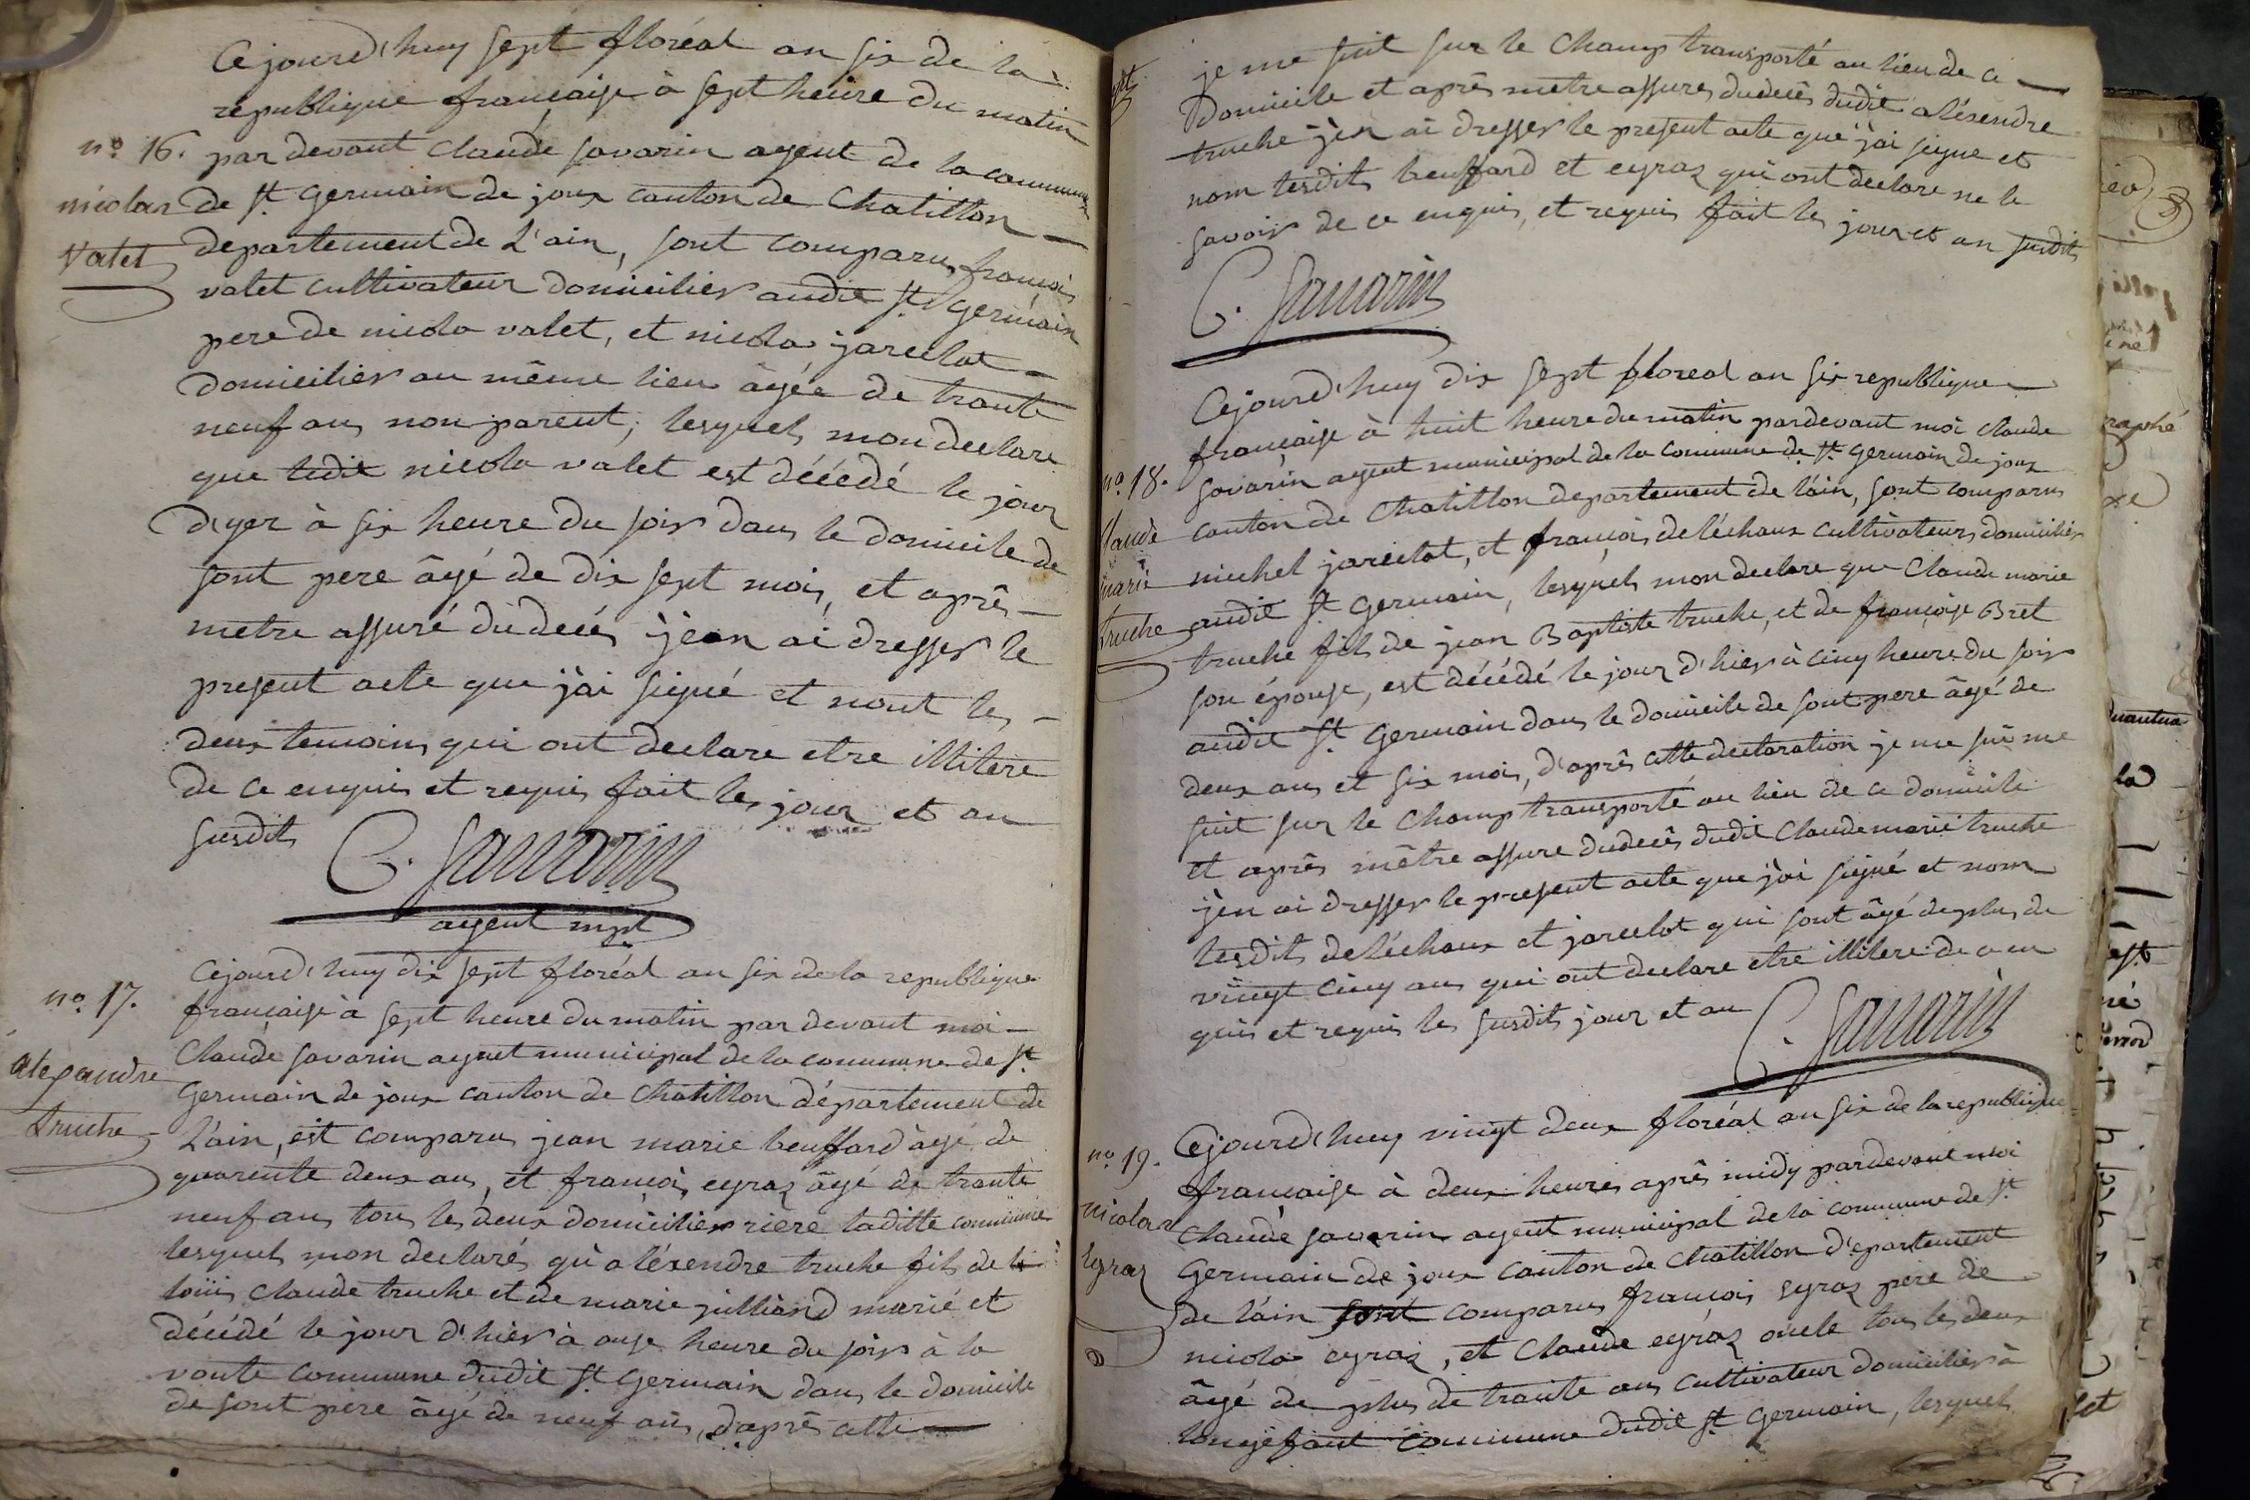 Cejourd'huy sept floréal an six de la
republique française à sept heure du matin
n.o 16. par devant Claude savarin agent de la commune
nicolas de St germain de joux canton de Chatillon
valet departement de L'ain, sont comparus françois
valet cultivateur domicilier audit St germain
pere de nicola valet, et nicola jarcelot
domicilier au même lieu âgée de trante
neuf ans non parent, lesquels mon declare
que ledit nicola valet est décédé le jour
d'yer à six heure du soir dans le domicile de
sont pere âgé de dix sept mois, et après
metre assuré dudecés jean ai dresser le
present acte que j'ai signé et nont les
deux temoins qui ont declare etre illitere
de ce enquis et requis fait les jour et an
susdits
C. Savarin
agent mpl
n.o 17.
alexandre
truche
Cejourd'huy dix sept floréal an six de la republique
française à sept heure du matin par devant moi
Claude savarin agnet municipal de la commune de St
germain de joux canton de Chatillon département de
L'ain, est comparus jean marie beuffard âgé de
quarente deux ans, et françois eyraz âgé de trante
neuf ans tous les deux domicilier riere laditte commune
lesquels mon declarés qu'alésendre truche fils de
loüis Claude truche et de marie jülliand marié et
décédé le jour d'hier à onse heure du soir à la
voute commune dudit St germain dans le domicile
de sont père âgé de neuf ans, d'après cette
je me suit sur le Champ transporté au lieu de ce
Domicile et après metre assures dudecés dudit alésendre
truche j'en ai dresser le present acte que j'ai signe et
nom lesdits beuffard et eyraz qui ont declare ne le
savoir de ce enquis, et requis fait les jour et an susdits
C. Savarin
n.o 18.
Claude
marie
truche
Cejourd'huy dix sept floreal an six republique
française à huit heure du matin pardevant moi Claude
savarin agent municipal de la commune de St germain de joux
canton de Chatillon departement de l'ain, sont comparus
michel jarcelot, et françois deléchaux cultivateurs domiciliés
audit St germain, lesquels mon declare que Claude marie
truche fils de jean Baptiste truche, et de françoise Bret
son épouse, est décédé le jour d'hier à cinq heure du soir
audit St germain dans le domicile de sont pere âgé de
deux ans et six mois, d'après cette declaration je me sui me
suit sur le Champ transporté au lieu de ce domicile
et après mêtre assure dudecés dudit Claude marie truche
j'en ai dresser le present acte que j'ai signé et nom
lesdits deléchaux et jarcelot qui sont âgé de plus de
vingt cinq ans qui ont declare etre illitere de ce en
quis et requis les susdits jour et an
C. Savarin
n.o 19.
nicolas
Eyraz
Cejourd'huy vingt deux floréal an six de la republique
française à deux heures après midy pardevant moi
Claude savarin agent municipal de la commune de St
germain de joux canton de Chatillon d'epartement
de l'ain sont comparus françois eyraz père de
nicola eyraz, et Claude eyraz oncle tous les deux
âgé de plus de trante ans cultivateur domicilier à
longefant commune dudit St germain, lesquels